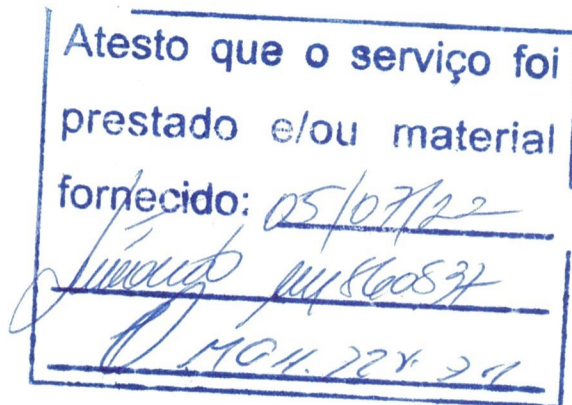 Atesto que o serviço foi
prestado e/ou material
fornecido: 05/07/22
860837